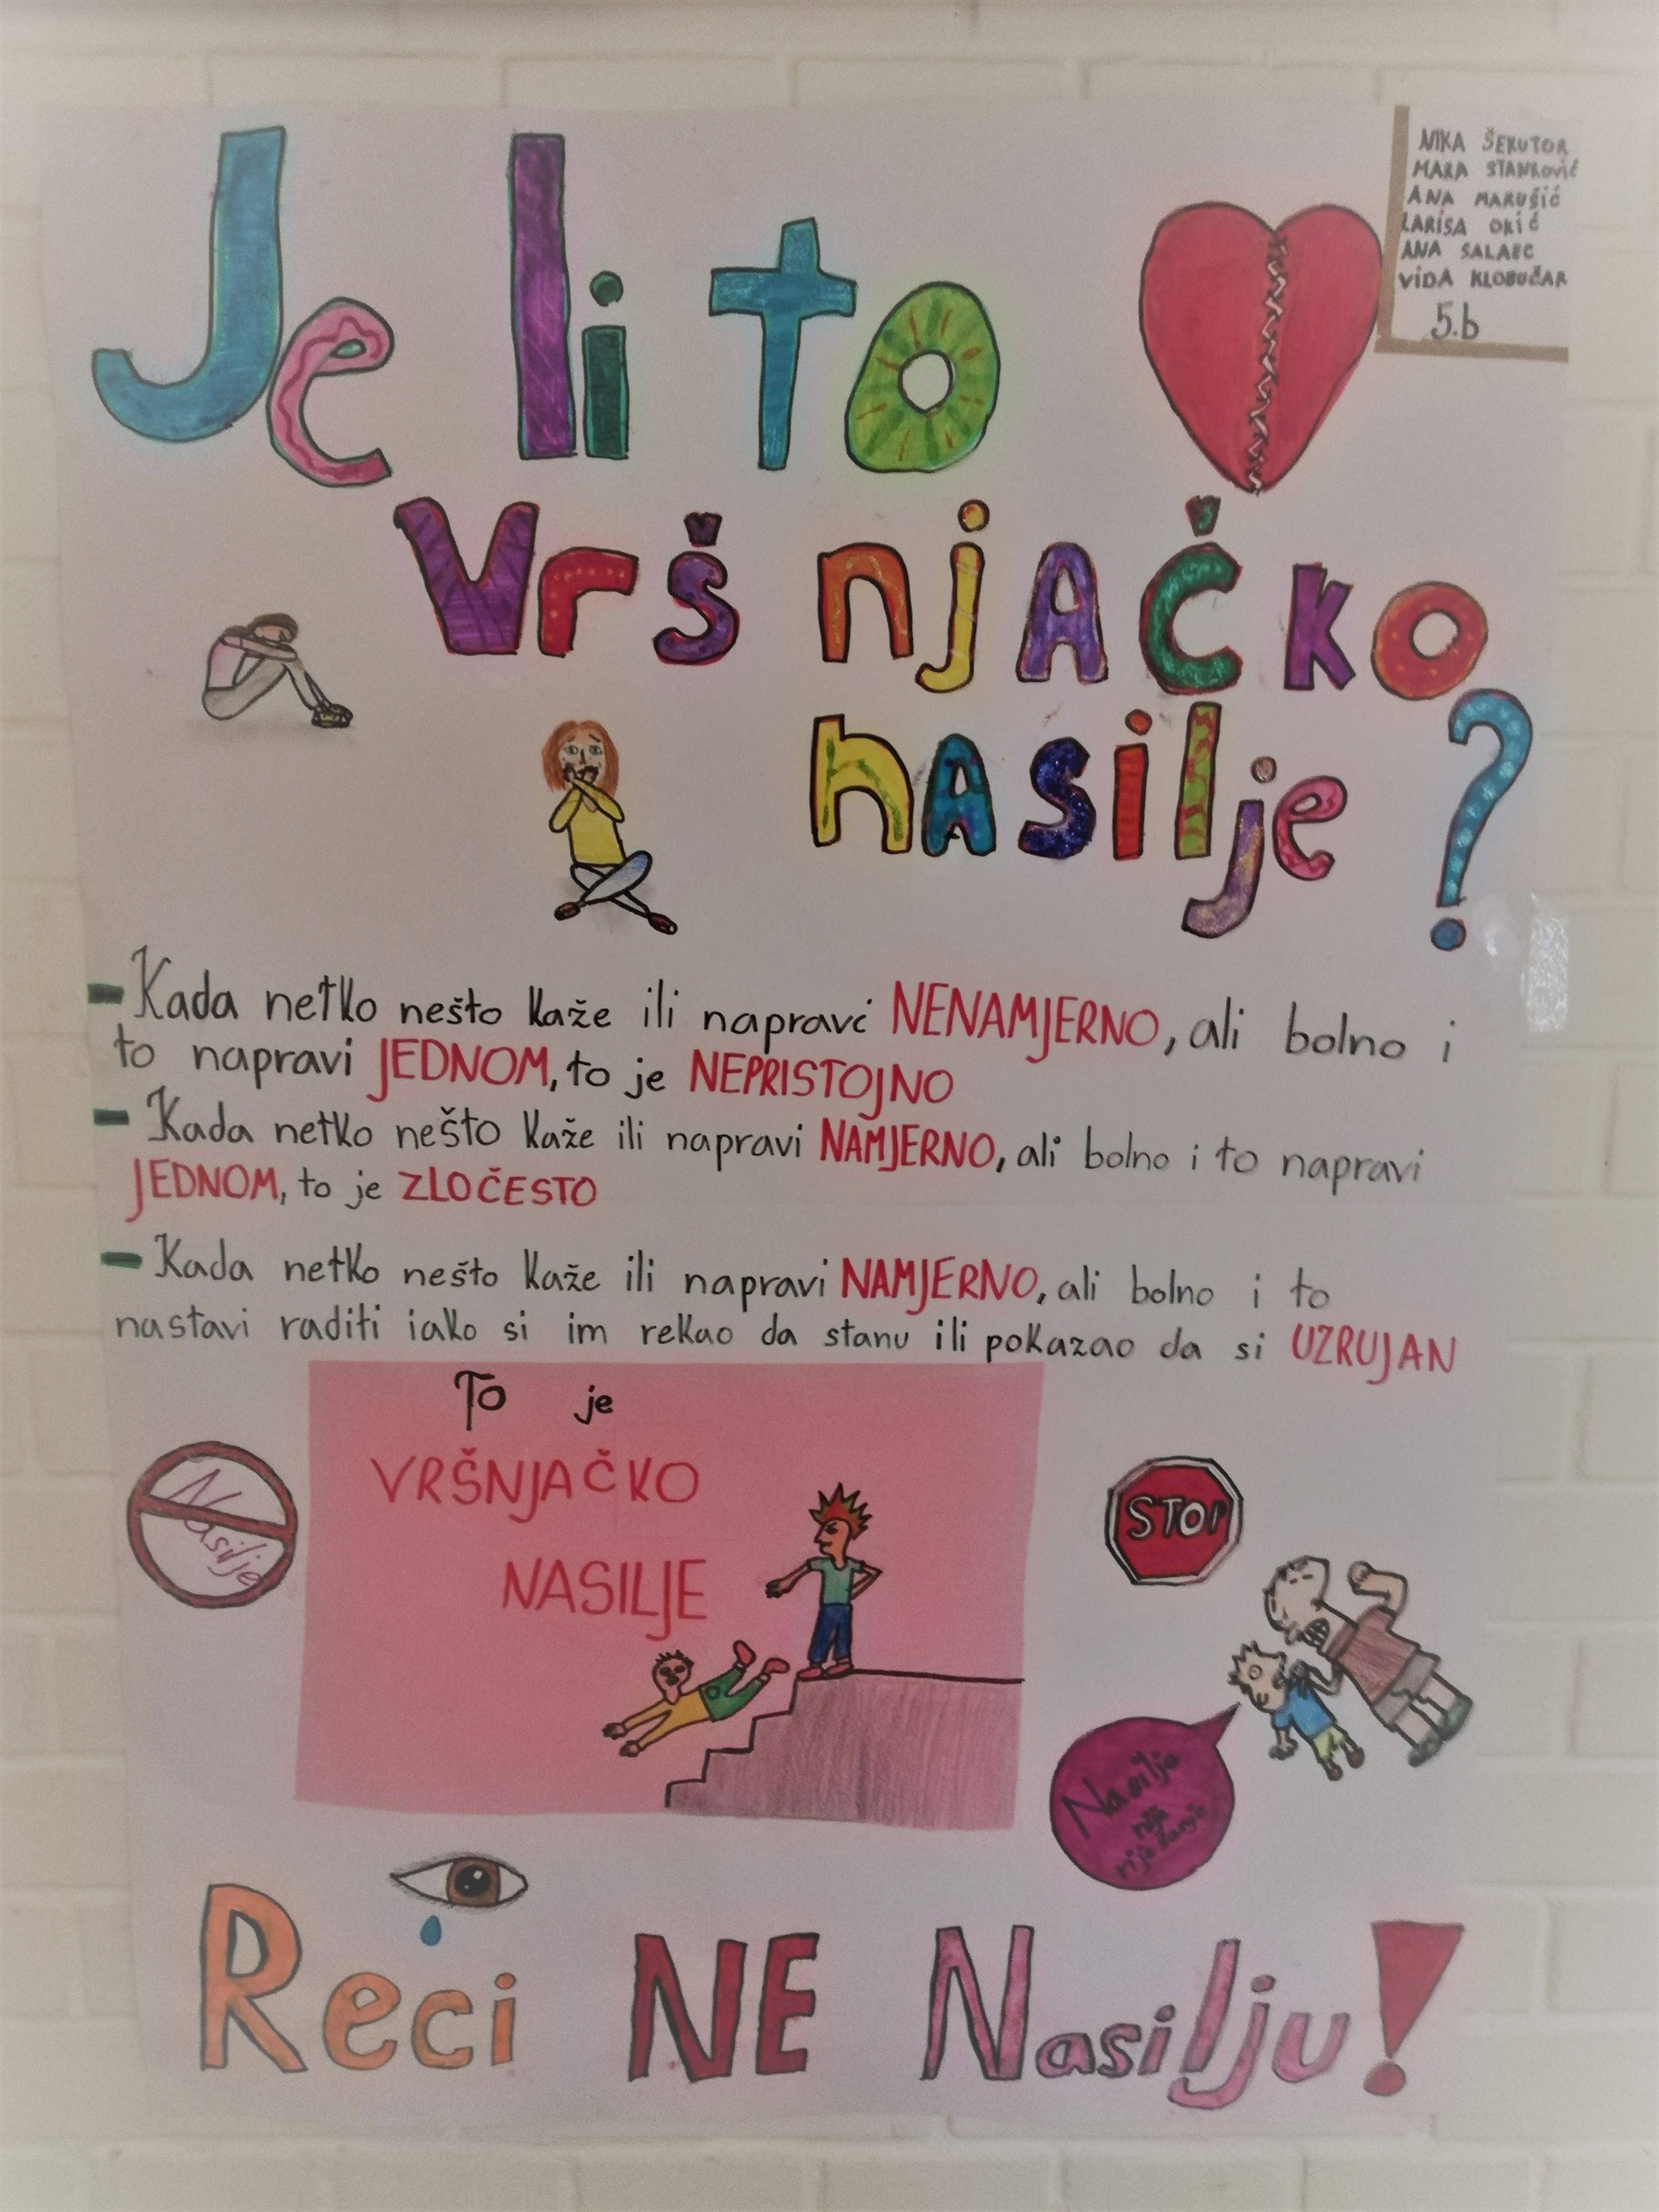 Je li to
NIKA ŠEKUTOR
MARA STANKOVIĆ
ANA MARUŠIĆ
LARISA OKIĆ
ANA SALAEC
VIDA KLOBUČAR
5.b
VršnjAČko
nAsilje?
- Kada netko nešto kaže ili napravi NENAMJERNO, ali bolno i
to napravi JEDNOM, to je NEPRISTOJNO
- Kada netko nešto kaže ili napravi NAMJERNO, ali bolno i to napravi
JEDNOM, to je ZLOČESTO
- Kada netko nešto kaže ili napravi NAMJERNO, ali bolno i to
nastavi raditi iako si im rekao da stanu ili pokazao da si UZRUJAN
To je
VRŠNJAČKO
NASILJE
Nasilje
STOP
Nasilje
nije
rješenje
Reci NE Nasilju!